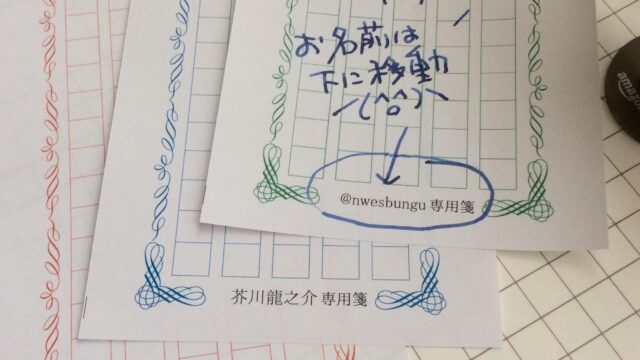 お名前は
下に移動
＼(^o^)／
@nwesbungu 専用箋
芥川龍之介 専用箋
amazon